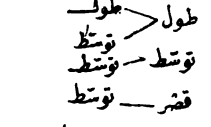 طول طول
توسط
توسط توسط
قصر توسط